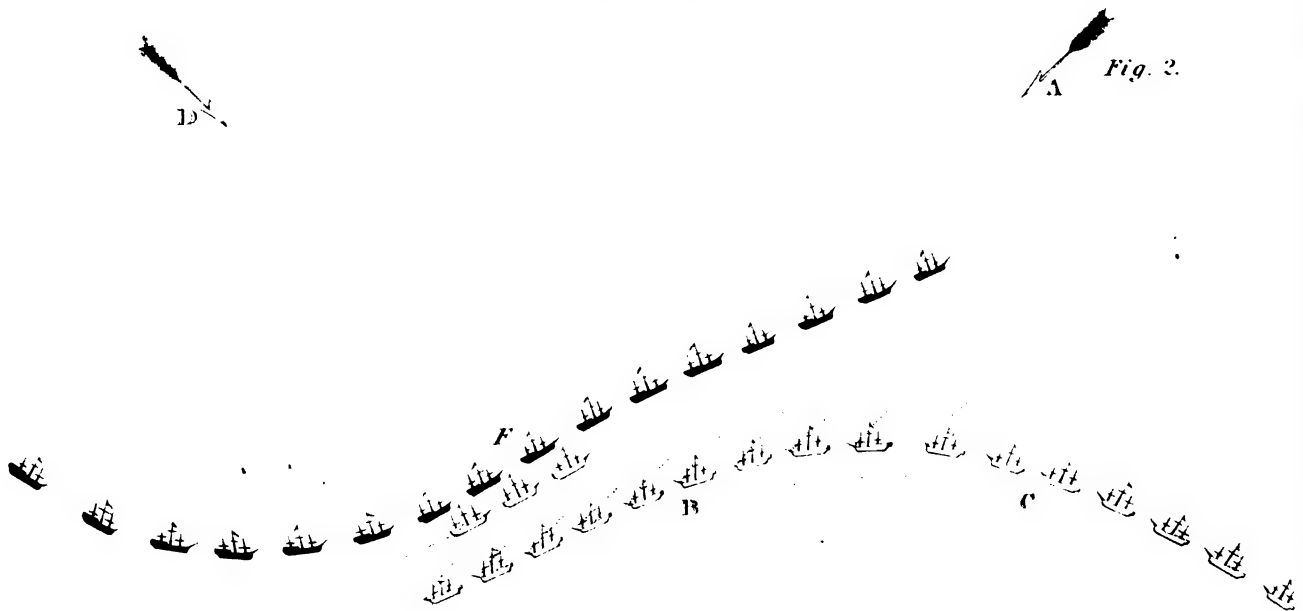 D
A
Fig. 2.
F
B
C